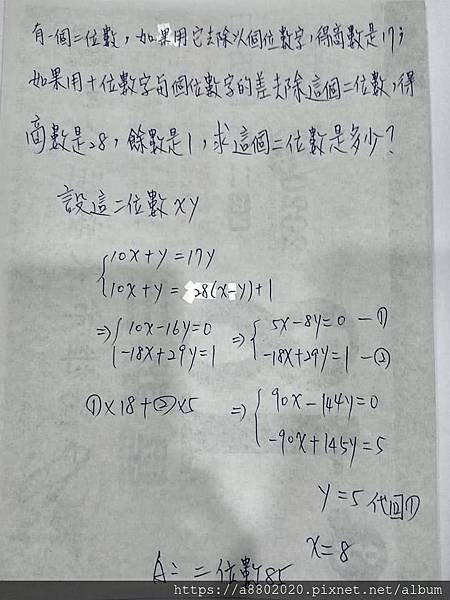 有一個二位數，如果用它去除以個位數字，得商數是17；
如果用十位數字與個位數字的差去除這個二位數，得
商數是28，餘數是1，求這個二位數是多少？
設這二位數XY
{10X+y=17y
10X+y=28(X-y)+1
⇒{10X-16y=0 ⇒{5X-8y=0 —①
-18X+29y=1 -18X+29y=1 —②
①×18+②×5 ⇒{90X-144y=0
-90X+145y=5
y=5 代回①
X=8
A：二位數85
https://a8802020.pixnet.net/album